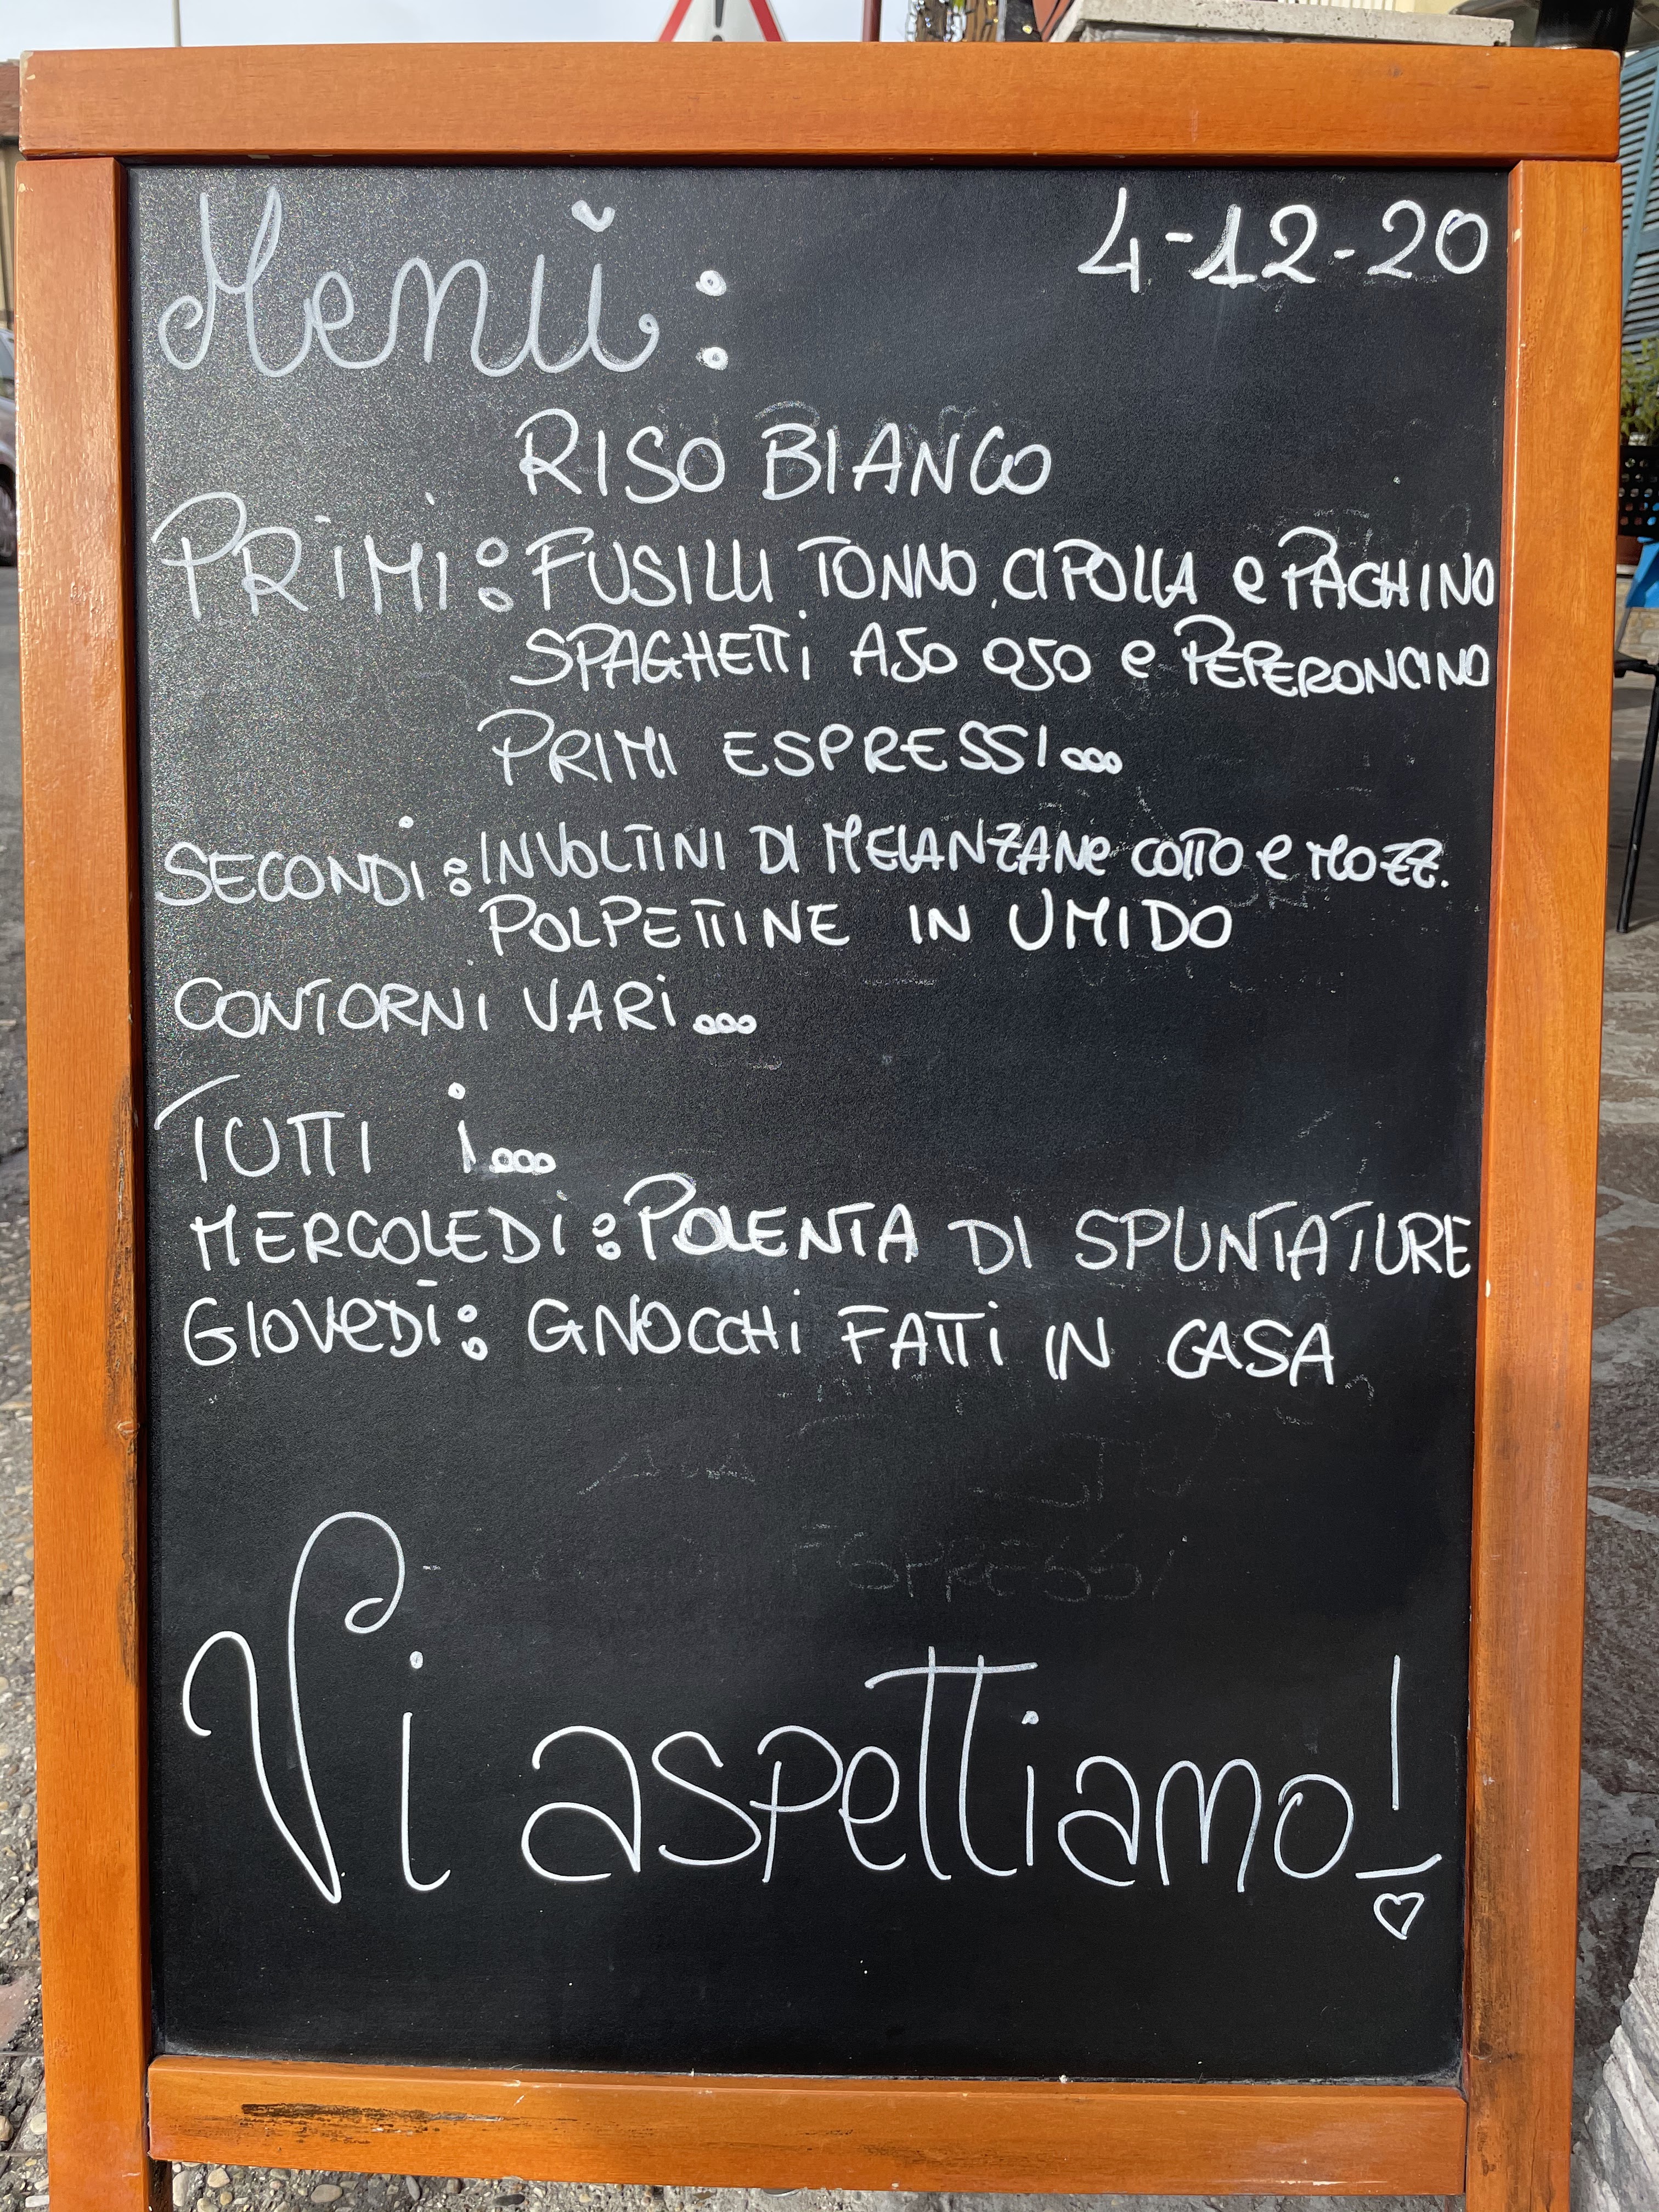 Menù:
4-12-20
RISO BIANCO
PRIMI: FUSILLI TONNO, CIPOLLA e PACHINO
SPAGHETTI AJO OJO e PEPERONCINO
PRIMI ESPRESSI...
SECONDI: INVOLTINI DI MELANZANE COTTO e MOZZ.
POLPETTINE IN UMIDO
CONTORNI VARI...
TUTTI i...
MERCOLEDI: POLENTA DI SPUNTATURE
GIOVEDÌ: GNOCCHI FATTI IN CASA
ESPRESSI
Vi aspettiamo!